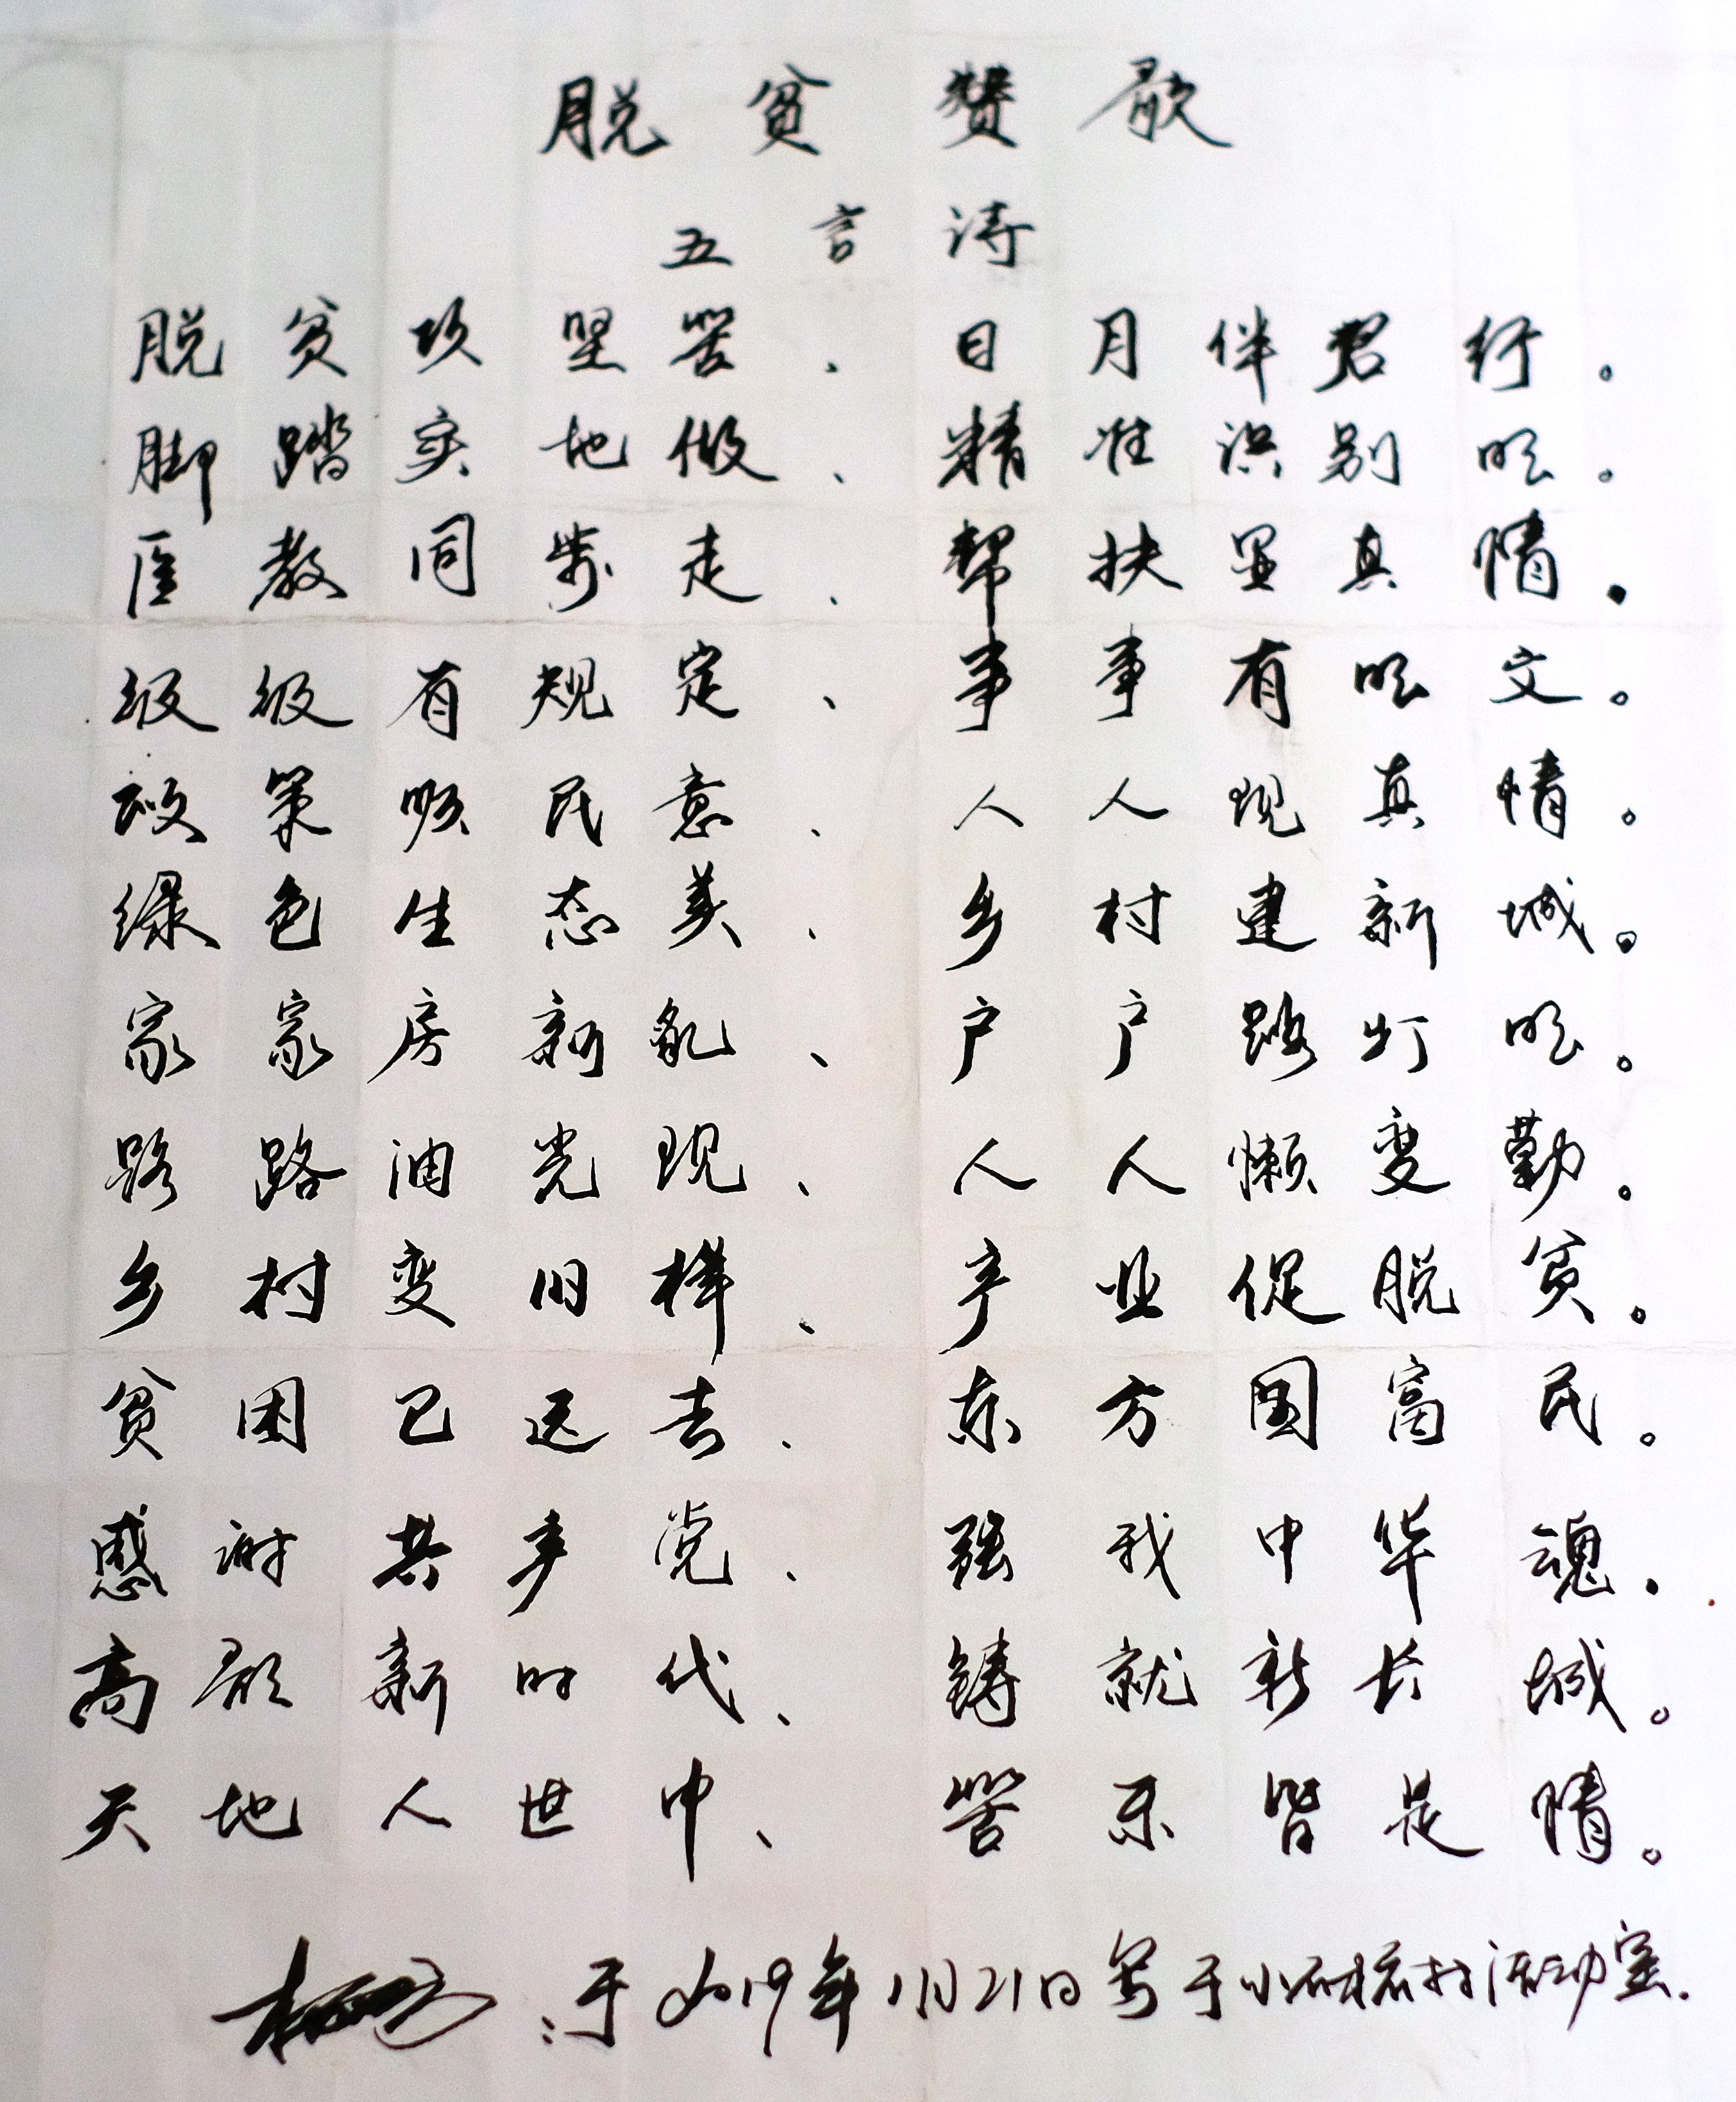 脱贫赞歌
五言诗
脱贫攻坚苦、日月伴君行。
脚踏实地做、精准识别明。
医教同步走、帮扶显真情。
级级有规定、事事有明文。
政策顺民意、人人现真情。
绿色生态美、乡村建新城。
家家房新乱、户户路灯明。
路路油光现、人人懒变勤。
乡村变旧样、产业促脱贫。
贫困已远去、东方国富民。
感谢共产党、强我中华魂。
高歌新时代、铸就新长城。
天地人世中、苦乐皆是情。
:于2019年11月21日写于小石村活动室.